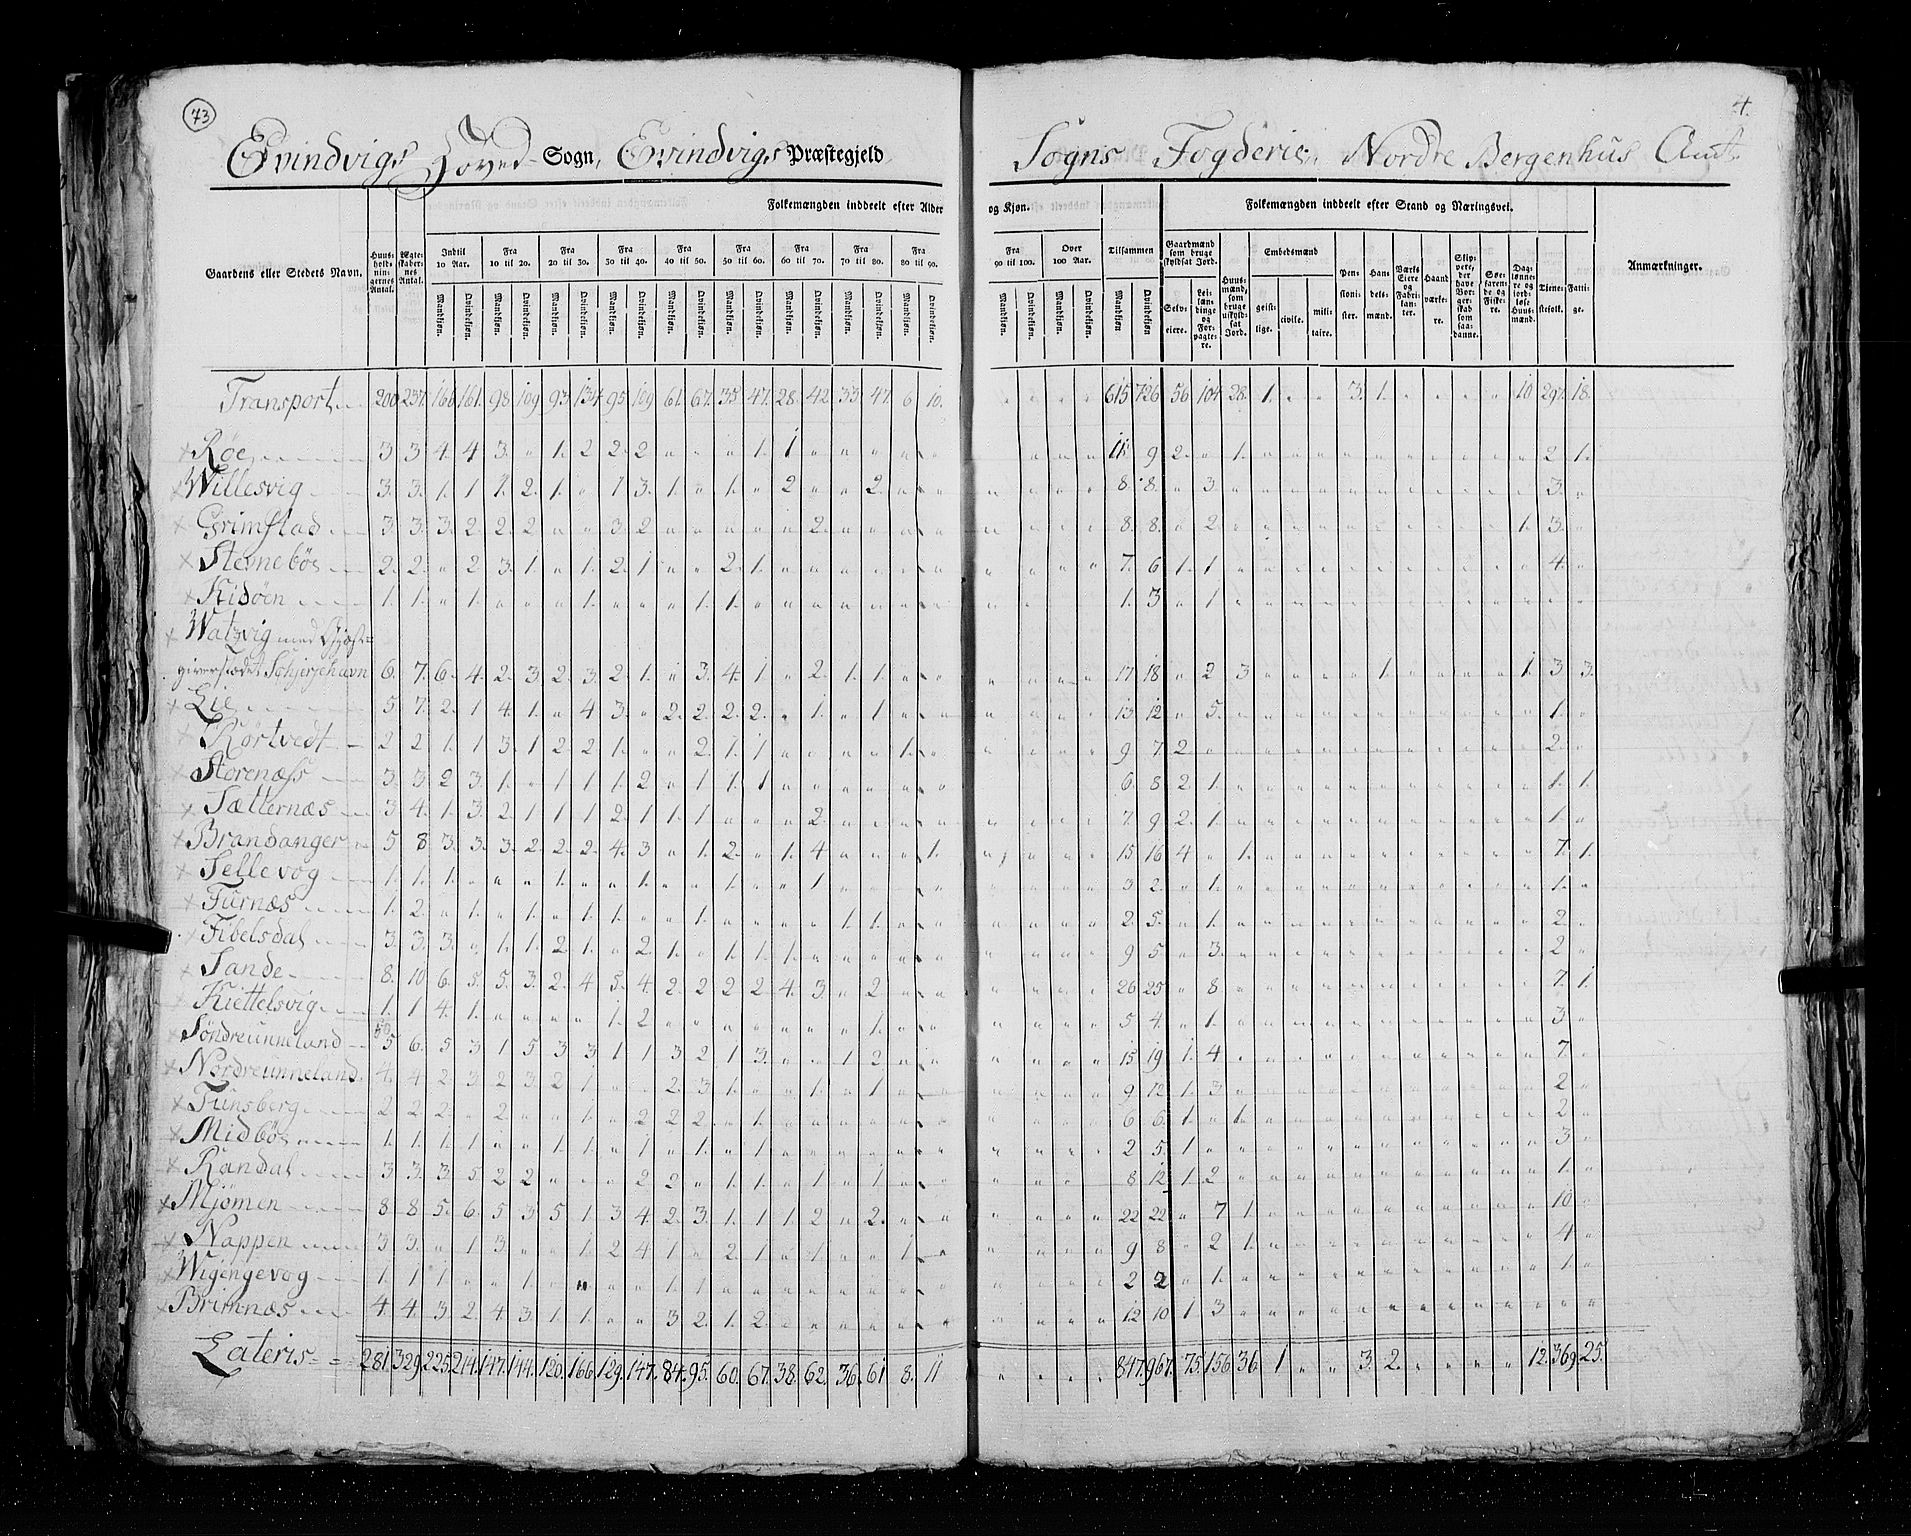 73
4.
Evindvigs Hoved- Sogn, Evindvigs Præstegjeld,
Sogns Fogderie, Nordre Bergenhus Amt.
Folkemængden inddeelt efter Alder og Kjøn.
Folkemængden inddeelt efter Stand og Næringsvei.
Gaardens eller Stedets Navn. Huus-holdnin-gernes Antal. Ægte-skaber-nes Antal. Indtil 10 Aar. Fra 10 til 20. Fra 20 til 30. Fra 30 til 40. Fra 40 til 50. Fra 50 til 60. Fra 60 til 70. Fra 70 til 80. Fra 80 til 90. Fra 90 til 100. Over 100 Aar. Tilsammen
Mandkjøn. Qvindekjøn.
Gaardmænd som bruge skyldsat Jord. Selv-eiere. Lei-længdinge og For-pagte-re.
Huus-mænd, som bruge uskyld-sat Jord.
Embedsmænd geist-lige. civile. mili-taire.
Pen-sioni-ster. Han-dels-mænd. Værks Eiere og Fabri-kan-ter. Haand værke-re. Skip-pere, der have Bor-ger-skab som saa-danne. Søe-faren-de og Fiske-re. Dag-lønne-re og jord-løse Huus-mænd. Tjene-stefolk. Fatti-ge.
Anmærkninger.
Transport 200 237 166 161 98 109 93 134 95 109 61 67 35 47 28 42 33 47 6 10 615 726 56 104 28 1 " " 3 1 " " " " 10 297 18
Røe 3 3 4 4 3 " 1 2 2 2 " " " 1 1 " " " " " 11 9 2 " 1 2 1
Willesvig 3 3 1 1 1 2 1 " 1 3 1 " 1 " 2 " " 2 " " 8 8 " 3 3 "
Grimstad 3 3 3 2 2 2 " " 3 2 " " " " " 2 " " " " 8 8 " 2 1 3 "
Stemebøe 2 2 " 2 3 1 " 1 2 1 " " 2 1 " " " " " " 7 6 1 1 4 "
Kidøen 1 1 " 1 " " " 1 " " " 1 1 " " " " " " " 1 3 " 1
Watzvig med Gjæst-
giverstædet Schjerjehavn 6 7 6 4 2 3 2 3 2 1 " 3 4 1 " 2 1 1 " " 17 18 " 2 3 1 1 3 3
Lie 5 7 2 1 4 1 " 4 3 " 2 2 2 2 " 1 " 1 " " 13 12 " 5 1 "
Kortvedt 2 2 1 1 3 1 2 2 1 " " 2 1 1 " " " " 1 " 9 7 2 " 2 "
Storenæss 3 3 2 3 1 " 1 1 1 2 " 1 1 1 " " " " " " 6 8 2 1 1 1
Sætternæs 3 4 1 3 2 1 1 1 2 1 1 1 " " " 2 " " " " 7 9 2 1 1 "
Brandanger 5 8 3 3 3 2 2 2 4 3 " 1 2 " 1 4 " " " 1 15 16 4 " 1 7 1
Sellevog 1 1 1 " " " 1 " " 1 " " 1 " " 1 " " " " 3 2 " 1 1 "
Furnæs 1 2 " 1 " 1 " 1 1 " " 1 " " " " 1 1 " " 2 5 " 1 2 "
Fibelsdal 3 3 3 " 1 1 2 1 " 2 1 " 1 1 1 " " " " " 9 5 " 3 2 "
Sande 8 10 6 5 5 3 2 4 5 4 2 2 2 2 4 3 " 2 " " 26 25 " 8 7 1
Kiettelsvig 1 1 4 1 " " " " 1 2 " " " " " " " 1 " " 5 4 " 1 3 "
Søndreunneland 5 6 5 3 1 5 3 3 1 1 3 2 1 3 " " 1 2 " " 15 19 1 4 7 "
Nordreunneland 4 4 2 3 2 3 2 1 " " 2 3 1 " " 1 " 1 " " 9 12 1 3 2 "
Tunsberg 2 2 2 " 2 " " 1 " 2 2 2 " 1 " " " " " " 6 6 1 " 1 2 "
Midbøe 1 1 1 1 " " 1 1 " 1 " 1 " 1 " " " " " " 2 5 1 " 3 "
Randal 3 3 3 5 2 2 " " " 2 2 " 1 1 " 1 " 1 " " 8 12 1 2 1 "
Mjømen 8 8 5 6 5 3 5 1 3 4 2 3 1 1 1 2 " 2 " " 22 22 " 7 1 10 "
Nappen 3 3 " 1 3 " " 1 2 4 1 " 2 1 " 1 " " 1 " 9 8 " 2 1 4 "
Wigengevog 1 1 1 " " 1 " " " " 1 1 " " " " " " " " 2 2 " 1 1 "
Brimnæs 4 4 3 2 4 3 1 1 " " 3 2 1 2 " " " " " " 12 10 1 3
Lateris 281 329 225 214 147 144 120 166 129 147 84 95 60 67 38 62 36 61 8 11 847 967 75 156 36 1 " " 3 2 " " " " 12 369 25